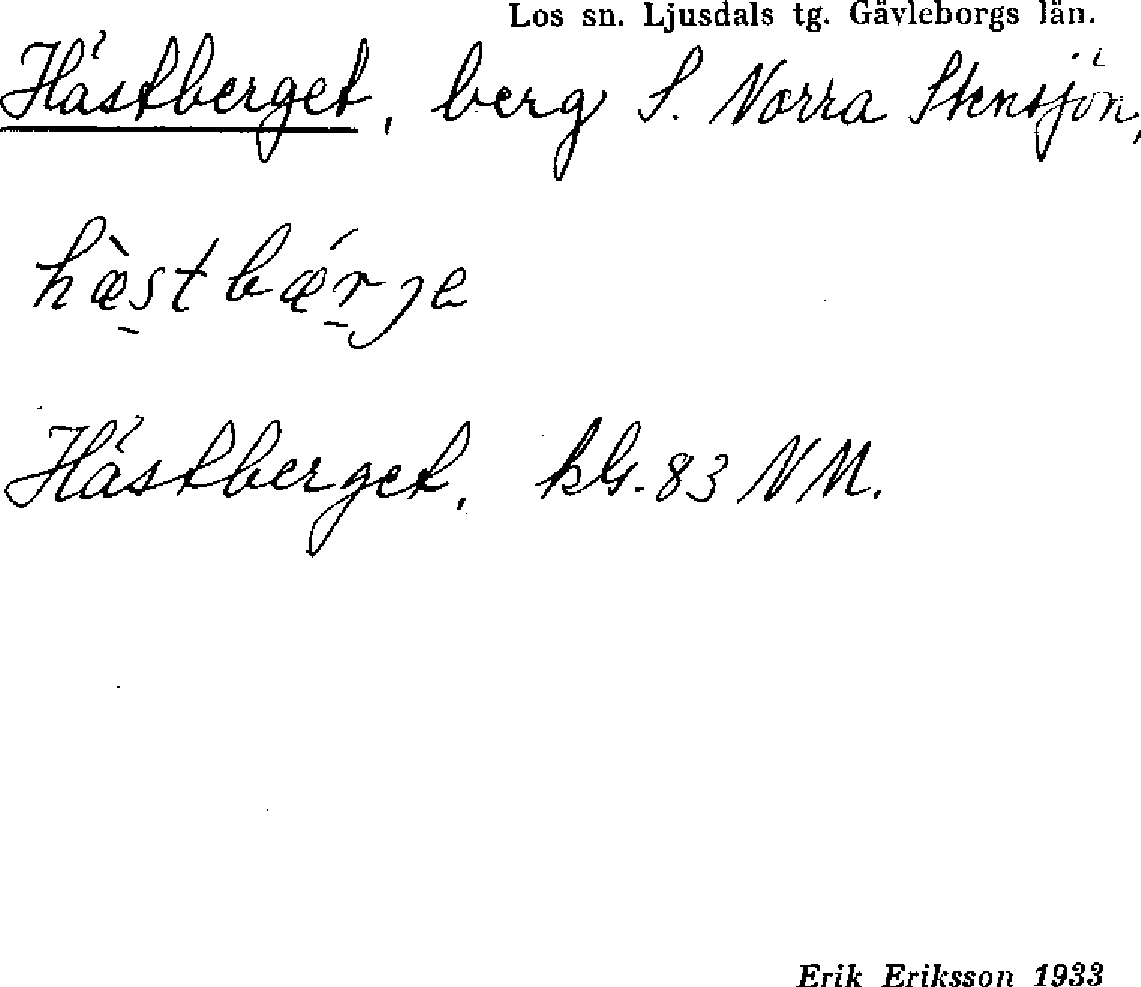 Los sn. Ljusdals tg. Gävleborgs län.
Hästberget, berg S. Norra Stensjön,
hæ̀stbǽrje
Hästberget, kG.83 NM.
Erik Eriksson 1933